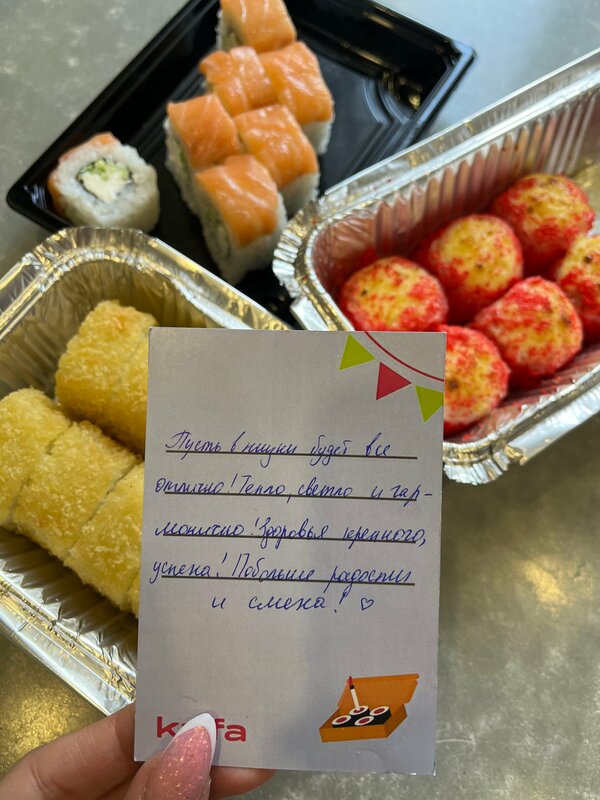 Пусть в жизни будет все
отлично! Тепло, светло и гар-
монично! Здоровья крепкого,
успеха! Побольше радости
и смеха! ♡